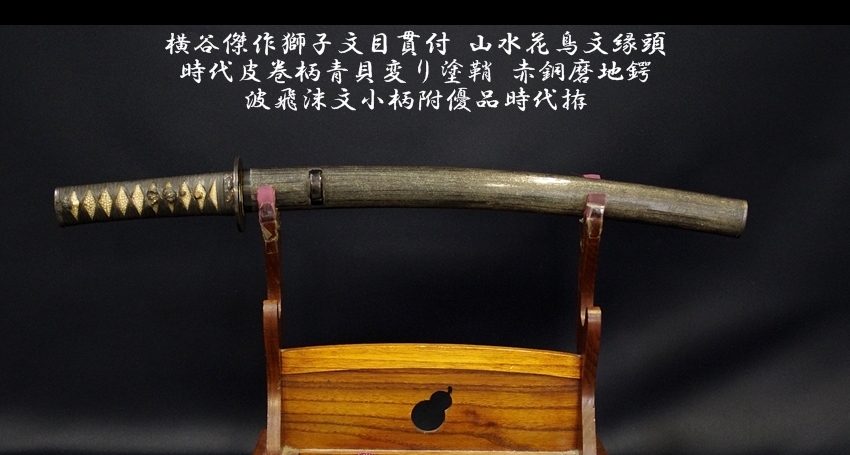 横谷傑作獅子文目貫付 山水花鳥文縁頭
時代皮巻柄青貝変り塗鞘 赤銅磨地鍔
波飛沫文小柄附優品時代拵